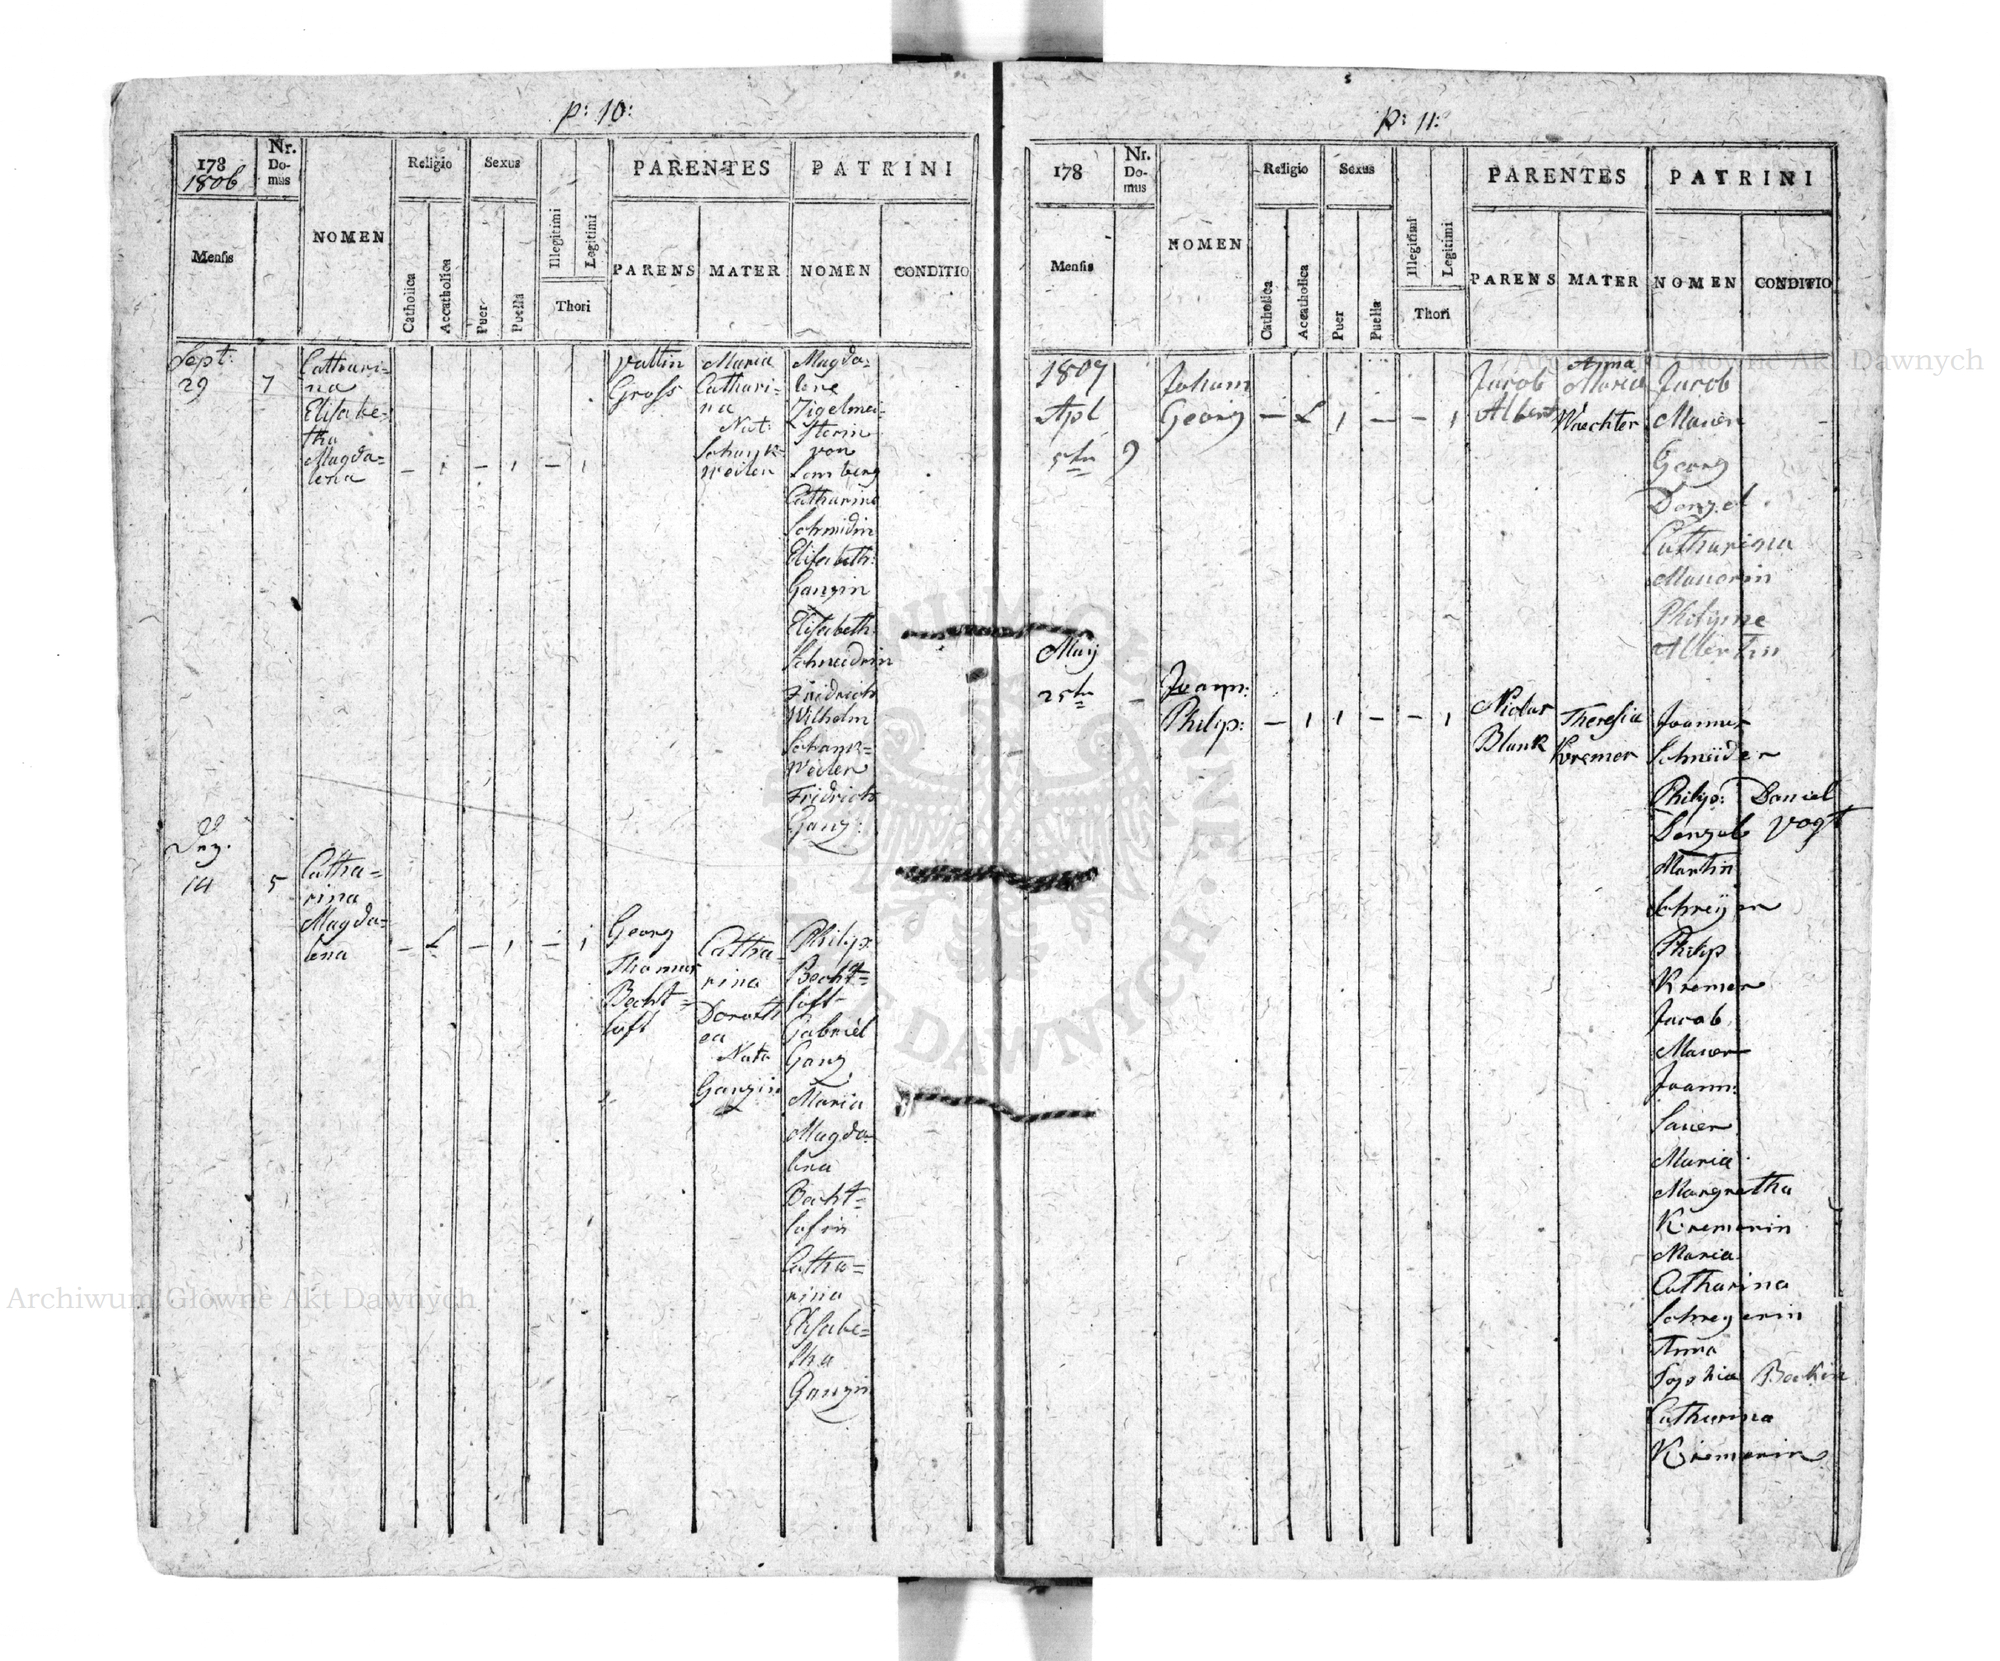 p: 10:
178
1806
Nr.
Do-
mus
Mensis
NOMEN
Religio
Catholica
Accatholica
Sexus
Puer
Puella
Illegitimi
Legitimi
Thori
PARENTES
PARENS
MATER
PATRINI
NOMEN
CONDITIO
Sept:
29
7
Cathari-
na
Elisabe-
tha
Magda-
lena
Valtin
Gross
Maria
Cathari-
na
Nat:
Schank-
weiler
Magda-
lene
Zigelmei-
sterin
von
Lemberg
Catharina
Schmidin
Elisabeth:
Ganzin
Elisabeth:
Schneidrin
Fridrich
Wilhelm
Schank-
weiler
Fridrich
Ganz:
Dez.
14
5
Catha-
rina
Magda-
lena
Georg
Thomas
Becht-
loft
Catha-
rina
Doroth
ea
Nata
Ganzin
Philip:
Becht-
loft
Gabriel
Ganz
Maria
Magda-
lena
Becht-
lofin
Catha-
rina
Elisabe-
tha
Ganzin
p: 11:
178
Nr.
Do-
mus
Mensis
NOMEN
Religio
Catholica
Accatholica
Sexus
Puer
Puella
Illegitimi
Legitimi
Thori
PARENTES
PARENS
MATER
PATRINI
NOMEN
CONDITIO
1807
Apl
5tn
9
Johann
Georg
Jacob
Albert
Anna
Maria
Waechter
Jacob
Mauer
Georg
Denzel
Catharina
Mauerin
Philipine
Albertin
Maij
25tn
Joann:
Philip:
Niclas
Blank
Theresia
Kremer
Joannes
Schneider
Philip:
Denzel
Daniel
Vogt
Martin
Schreijer
Philip
Kremer
Jacob
Mauer
Joann:
Sauer
Maria
Margretha
Kremerin
Maria
Catharina
Schreyerin
Anna
Sophia Beckin
Catharina
Kremerin
Archiwum Główne Akt Dawnych
Archiwum Główne Akt Dawnych